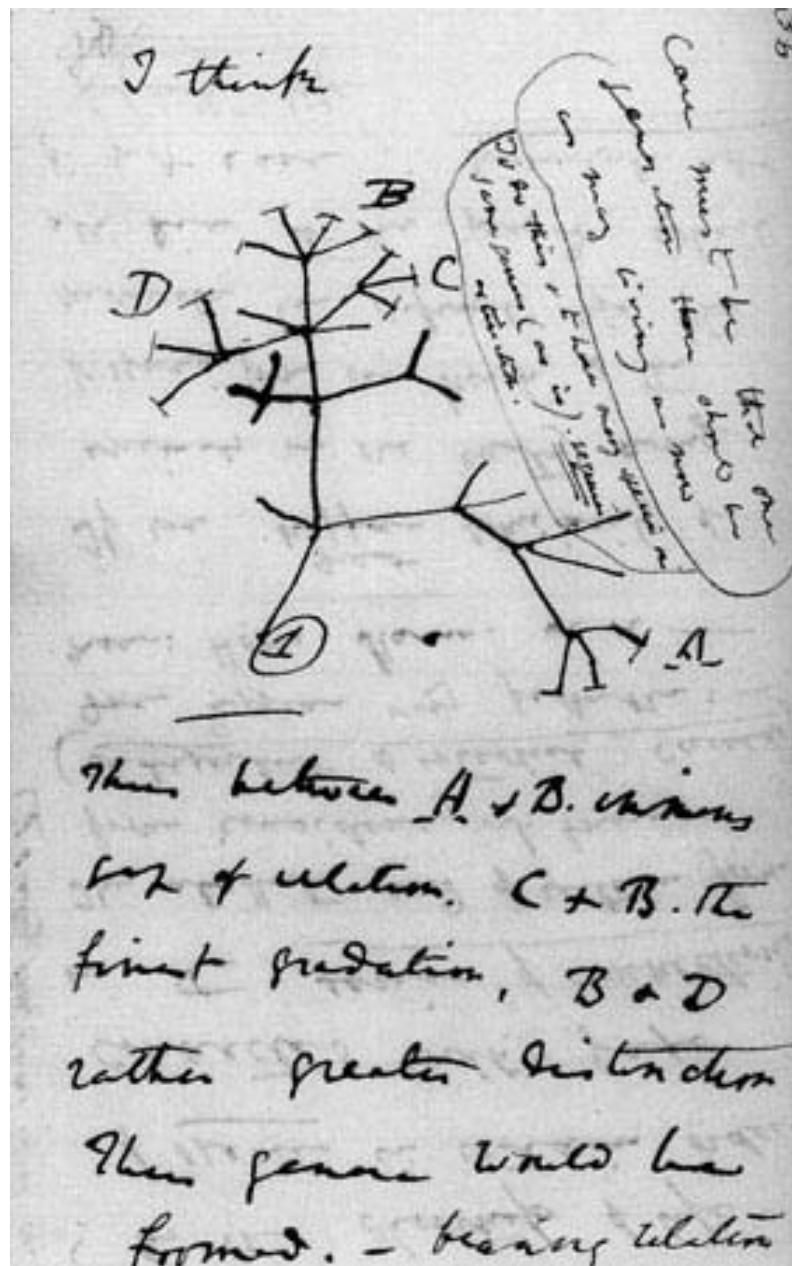 I think
36
Case must be that one
generation then should be
as many living as now
To do this & to have many species in
same genus (as is). requires
extinction.
B
D
C
1
A
Thus between A & B. immens
gap of relation. C & B. the
finest gradation, B & D
rather greater distinction
Thus genera would be
formed. — bearing relation